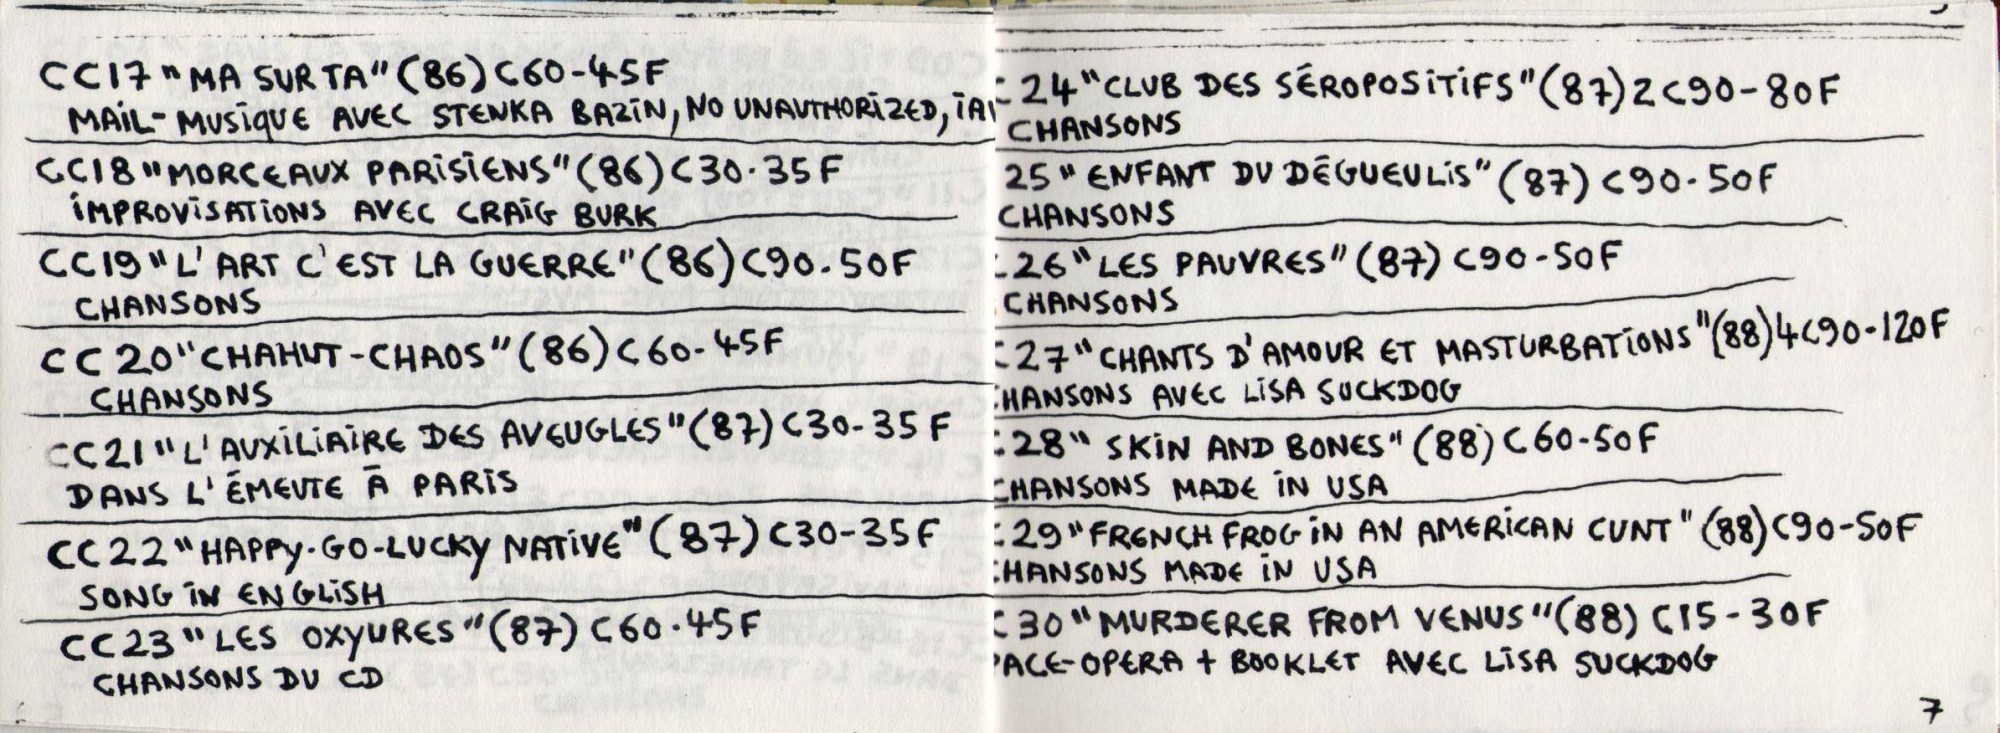 CC17 "MA SUR TA" (86) C60-45F
MAIL-MUSIQUE AVEC STENKA BAZIN, NO UNAUTHORIZED,
CC18 "MORCEAUX PARISIENS" (86) C30.35F
IMPROVISATIONS AVEC CRAIG BURK
CC19 "L'ART C'EST LA GUERRE" (86) C90.50F
CHANSONS
CC20 "CHAHUT-CHAOS" (86) C60-45F
CHANSONS
CC21 "L'AUXILIAIRE DES AVEUGLES" (87) C30-35F
DANS L'ÉMEUTE À PARIS
CC22 "HAPPY-GO-LUCKY NATIVE" (87) C30-35F
SONG IN ENGLISH
CC23 "LES OXYURES" (87) C60.45F
CHANSONS DU CD
C24 "CLUB DES SÉROPOSITIFS" (87) 2C90-80F
CHANSONS
25 "ENFANT DU DÉGUEULIS" (87) C90.50F
CHANSONS
26 "LES PAUVRES" (87) C90-50F
CHANSONS
C27 "CHANTS D'AMOUR ET MASTURBATIONS" (88) 4C90-120F
HANSONS AVEC LISA SUCKDOG
C28 "SKIN AND BONES" (88) C60-50F
HANSONS MADE IN USA
C29 "FRENCH FROG IN AN AMERICAN CUNT" (88) C90-50F
HANSONS MADE IN USA
C30 "MURDERER FROM VENUS" (88) C15-30F
PACE-OPERA + BOOKLET AVEC LISA SUCKDOG
7